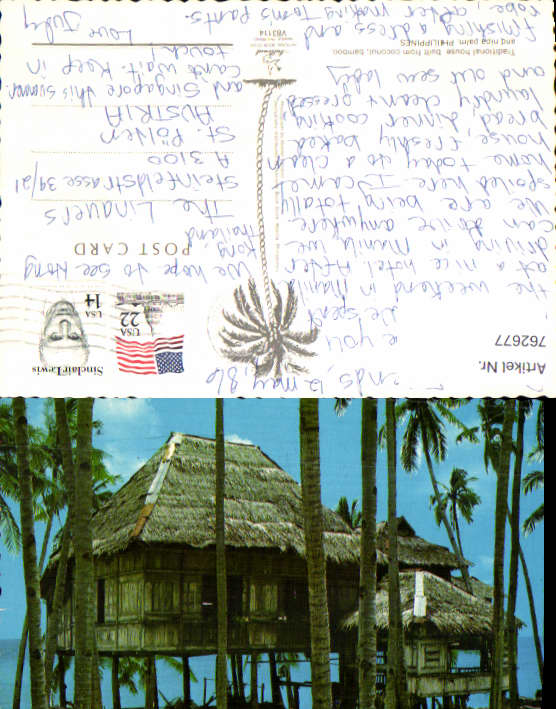 Artikel Nr.
762677
12 may, 86
e you
We spent
the weekend in manila
at a nice hotel. After
driving in Manila we
can drive anywhere
We are being totally
spoiled here. I came
home today to a clean
house, freshly baked
bread, dinner cooking,
laundry clean & pressed
and our sew lady
finishing a dress and
robe, after making Tom's pants.
Traditional house built from coconut, bamboo
and nipa palm. PHILIPPINES
VB3114
Sinclair Lewis
USA
14
USA
22
POST CARD
The Lindners
Steinfeldstrasse 39/21
A 3100
St. Pölten
AUSTRIA
We hope to see Hong
Kong, Thailand
and Singapore this summer.
Can't wait. Keep in
touch
Love Judy